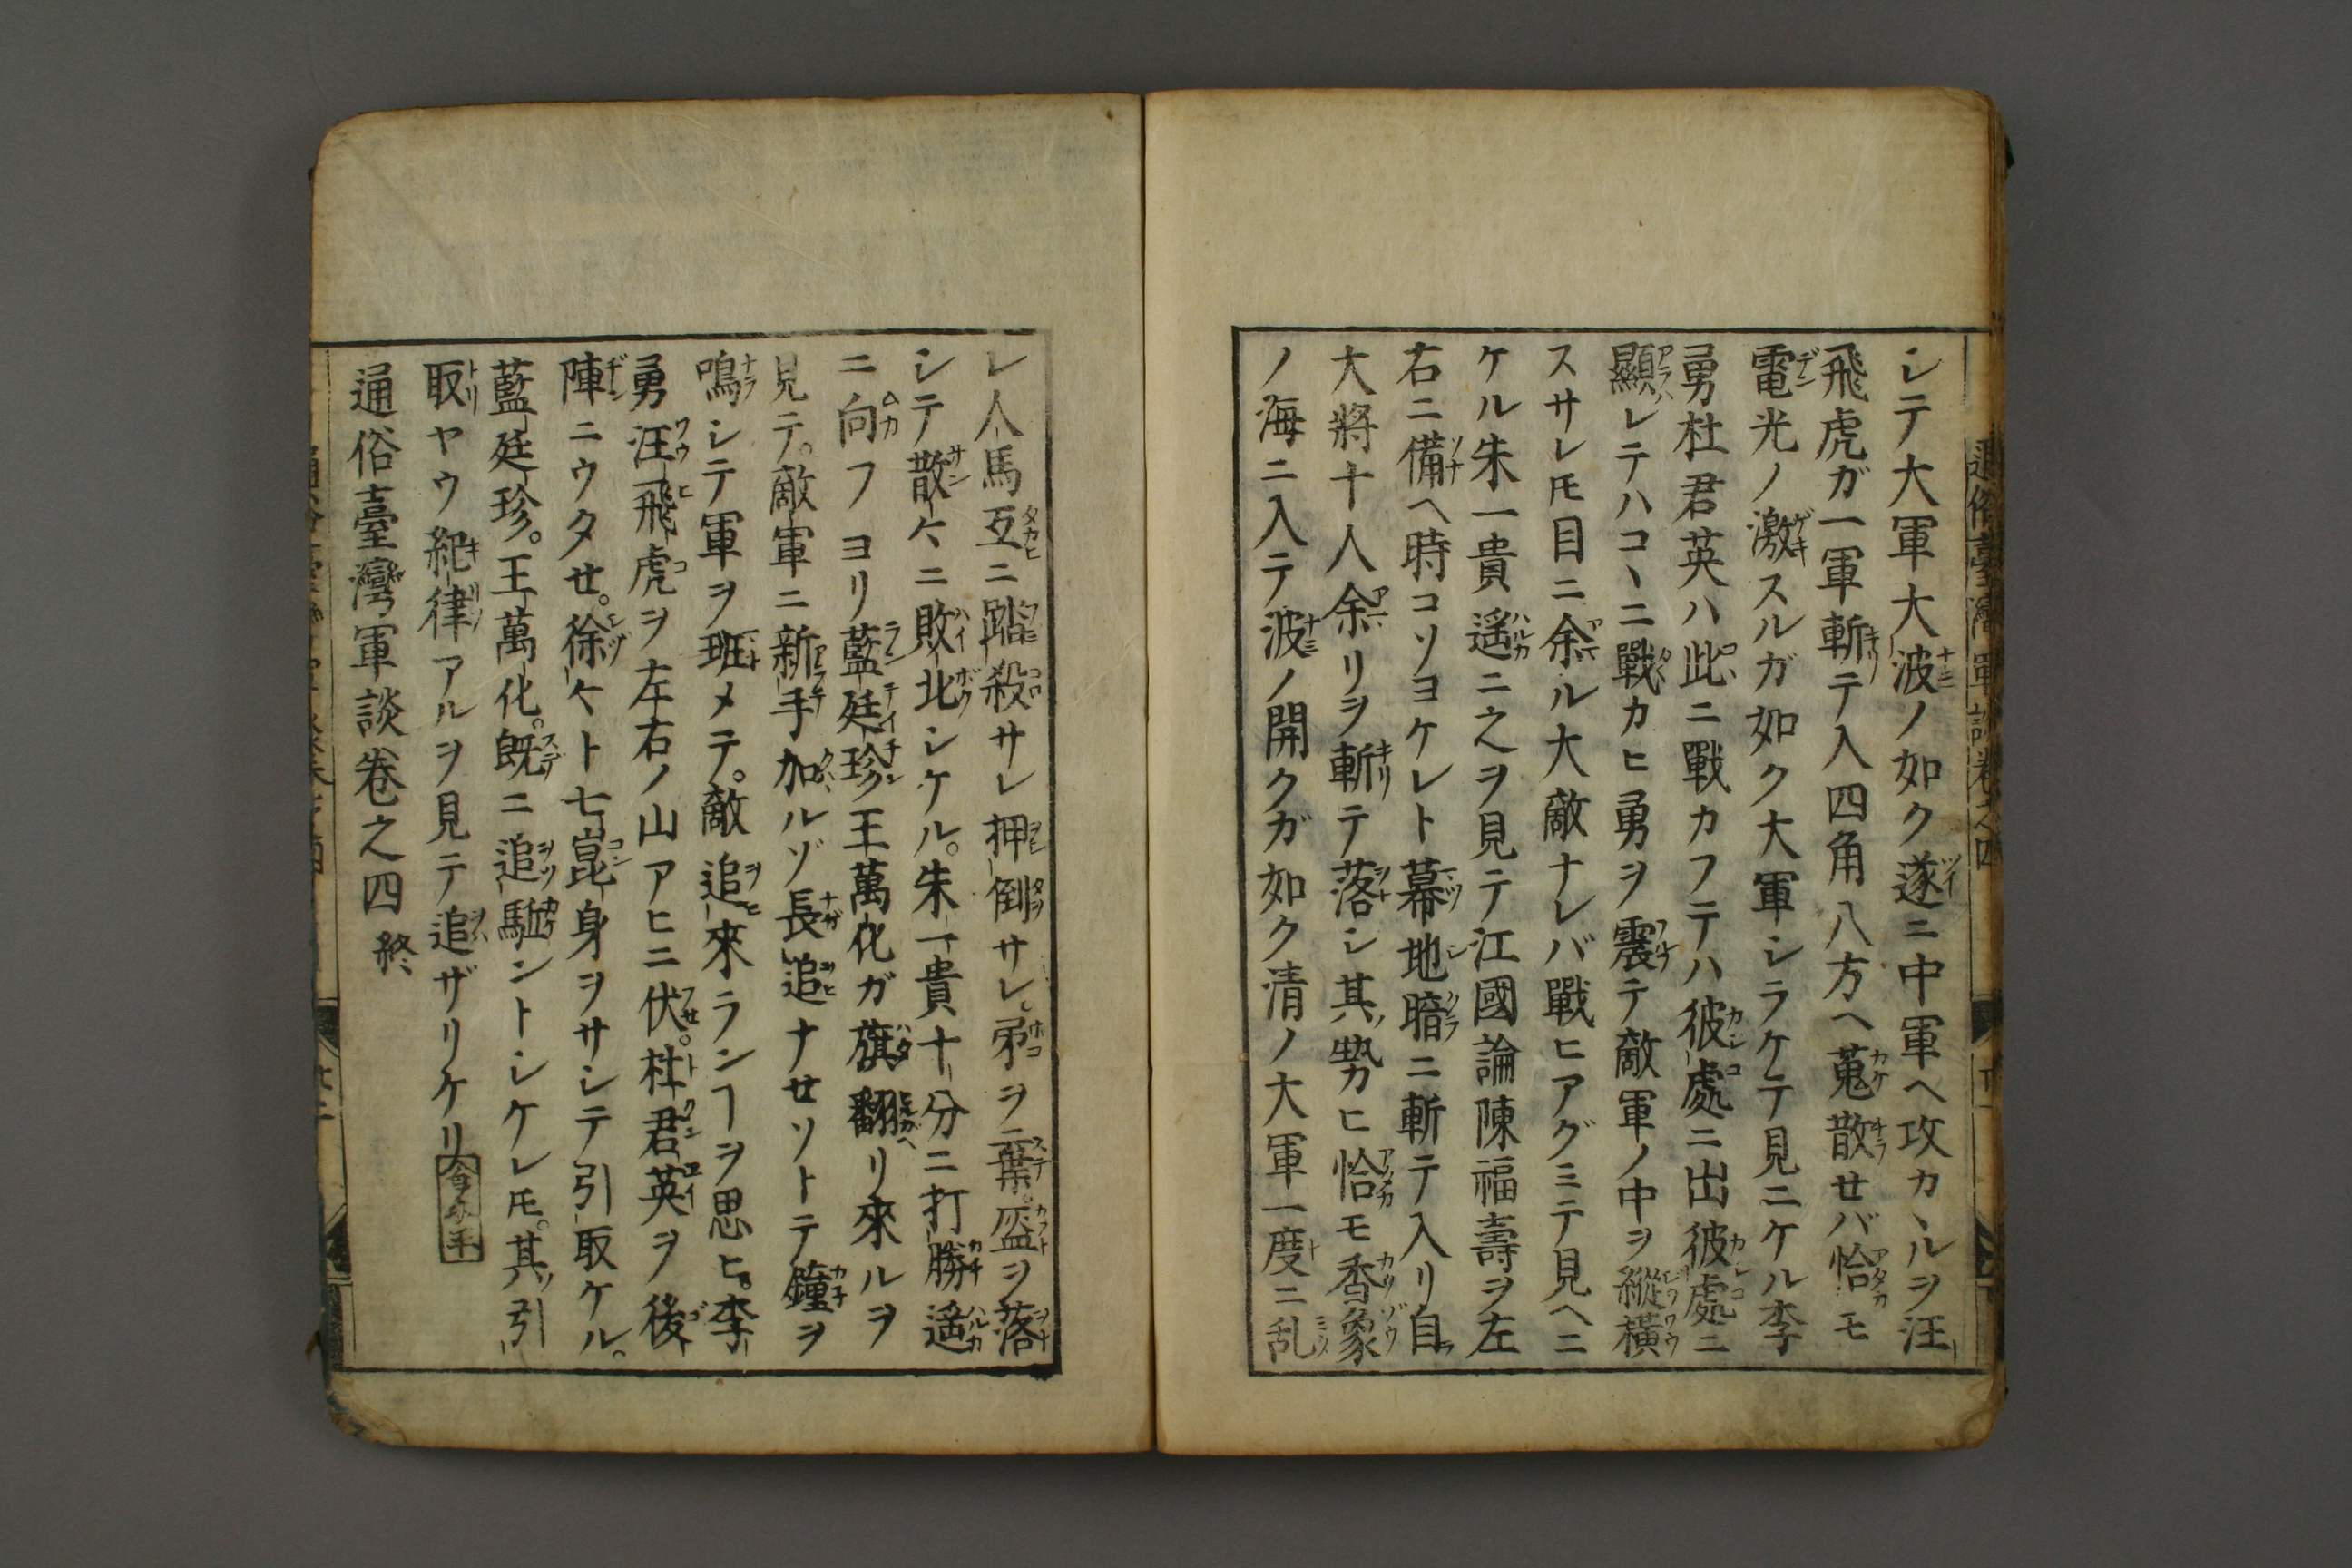 シテ大軍大波ノ如ク遂ニ中軍ヘ攻カヽルヲ汪
飛虎ガ一軍斬テ入四角八方ヘ蒐散せバ恰モ
電光ノ激スルガ如ク大軍シラケテ見ニケル李
勇杜君英ハ此ニ戰カフテハ彼處ニ出彼處ニ
顯レテハコヽニ戰カヒ勇ヲ震テ敵軍ノ中ヲ縱横
スサレ𪜈目ニ余ル大敵ナレバ戰ヒアグミテ見ヘニ
ケル朱一貴遙ニ之ヲ見テ江國論陳福壽ヲ左
右ニ備ヘ時コソヨケレト幕地暗ニ斬テ入リ自
大將十人余リヲ斬テ落シ其勢ヒ恰モ香象
ノ海ニ入テ波ノ開クガ如ク清ノ大軍一度ニ乱
レ人馬互ニ踏殺サレ押倒サレ。矛ヲ棄。盔ヲ落
シテ散々ニ敗北シケル。朱一貴十分ニ打勝遙
ニ向フヨリ藍廷珍王萬化ガ旗翻リ來ルヲ
見テ。敵軍ニ新手加ルゾ長追ナせソトテ鐘ヲ
鳴シテ軍ヲ班メテ。敵追來ランヿヲ思ヒ。李
勇汪飛虎ヲ左右ノ山アヒニ伏。杜君英ヲ後
陣ニウタせ。徐々ト七崑身ヲサシテ引取ケル。
藍廷珍。王萬化。既ニ追駈ントシケレ𪜈。其引
取ヤウ紀律アルヲ見テ追ザリケリ
通俗臺灣軍談卷之四 終
通俗臺灣軍談卷之四